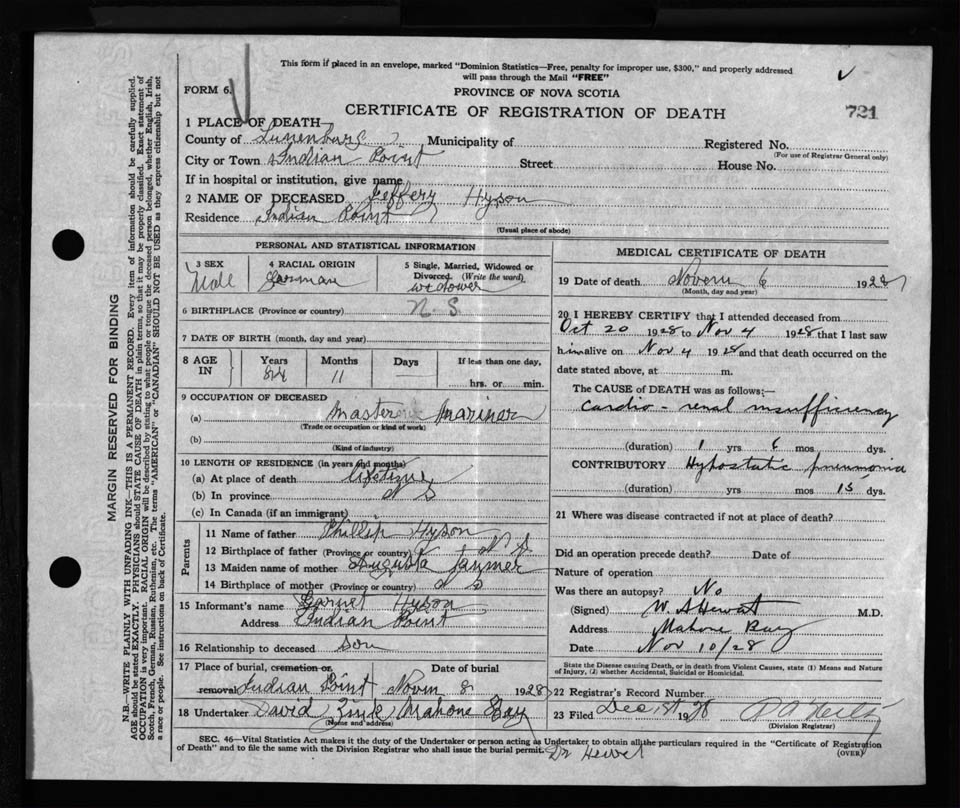 This form if placed in an envelope, marked "Dominion Statistics—Free, penalty for improper use, $300," and properly addressed
will pass through the Mail "FREE"
FORM 6.
PROVINCE OF NOVA SCOTIA
CERTIFICATE OF REGISTRATION OF DEATH
721
1 PLACE OF DEATH
County of Lunenburg Municipality of Registered No.
(For use of Registrar General only)
City or Town Indian Point Street House No.
If in hospital or institution, give name
2 NAME OF DECEASED Jeffery Hyson
Residence Indian Point
(Usual place of abode)
PERSONAL AND STATISTICAL INFORMATION
3 SEX 4 RACIAL ORIGIN 5 Single, Married, Widowed or
Divorced. (Write the word)
Male German widower
6 BIRTHPLACE (Province or country) N. S.
7 DATE OF BIRTH (month, day and year)
8 AGE IN Years Months Days If less than one day,
84 11 hrs. or min.
9 OCCUPATION OF DECEASED
(a) Master Mariner
(Trade or occupation or kind of work)
(b)
(Kind of industry)
10 LENGTH OF RESIDENCE (in years and months)
(a) At place of death lifetime
(b) In province N S
(c) In Canada (if an immigrant)
Parents
11 Name of father Phillip Hyson
12 Birthplace of father (Province or country) N S
13 Maiden name of mother Augusta
14 Birthplace of mother (Province or country) N S
15 Informant's name Garnet Hyson
Address Indian Point
16 Relationship to deceased Son
17 Place of burial, cremation or Date of burial
removal Indian Point Novm 8 1928
18 Undertaker David Zink Mahone Bay
(Name and address)
MEDICAL CERTIFICATE OF DEATH
19 Date of death Novem 6 1928
(Month, day and year)
20 I HEREBY CERTIFY that I attended deceased from
Oct 20 1928 to Nov 4 1928 that I last saw
him alive on Nov 4 1928 and that death occurred on the
date stated above, at m.
The CAUSE of DEATH was as follows:—
Cardio - renal insufficiency
(duration) 1 yrs 6 mos dys.
CONTRIBUTORY Hypostatic pneumonia
(duration) yrs mos 15 dys.
21 Where was disease contracted if not at place of death?
Did an operation precede death? Date of
Nature of operation
Was there an autopsy? No
(Signed) W. A Hewat M.D.
Address Mahone Bay
Date Nov 10/28
State the Disease causing Death, or in death from Violent Causes, state (1) Means and Nature
of Injury, (2) whether Accidental, Suicidal or Homicidal.
22 Registrar's Record Number
23 Filed Dec 1st 1928
(Division Registrar)
SEC. 46—Vital Statistics Act makes it the duty of the Undertaker or person acting as Undertaker to obtain all the particulars required in the "Certificate of Registration
of Death" and to file the same with the Division Registrar who shall issue the burial permit. (OVER)
MARGIN RESERVED FOR BINDING
N.B.—WRITE PLAINLY WITH UNFADING INK—THIS IS A PERMANENT RECORD. Every item of information should be carefully supplied.
AGE should be stated EXACTLY. PHYSICIANS should STATE CAUSE OF DEATH in plain terms, so that it may be properly classified. Exact statement of
OCCUPATION is very important. RACIAL ORIGIN will be described by stating to what people or tongue the deceased person belonged, whether English, Irish,
Scotch, French, German, Russian, Ruthenian, etc. The terms "AMERICAN" or "CANADIAN" SHOULD NOT BE USED as they express citizenship but not
a race or people. See instructions on back of Certificate.